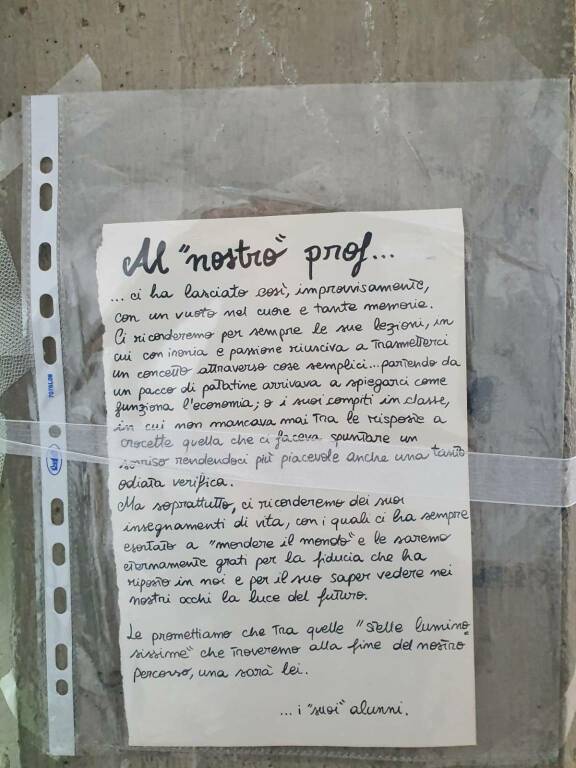 Al "nostro" prof...
... ci ha lasciato così, improvvisamente,
con un vuoto nel cuore e tante memorie.
Ci ricorderemo per sempre le sue lezioni, in
cui con ironia e passione riusciva a trasmetterci
un concetto attraverso cose semplici... partendo da
un pacco di patatine arrivava a spiegarci come
funziona l'economia; o i suoi compiti in classe,
in cui non mancava mai tra le risposte a
crocette quella che ci faceva spuntare un
sorriso rendendoci più piacevole anche una tanto
odiata verifica.
Ma soprattutto, ci ricorderemo dei suoi
insegnamenti di vita, con i quali ci ha sempre
esortato a "mordere il mondo" e le saremo
eternamente grati per la fiducia che ha
riposto in noi e per il suo saper vedere nei
nostri occhi la luce del futuro.
Le promettiamo che tra quelle "stelle lumino
sissime" che troveremo alla fine del nostro
percorso, una sarà lei.
... i "suoi" alunni.